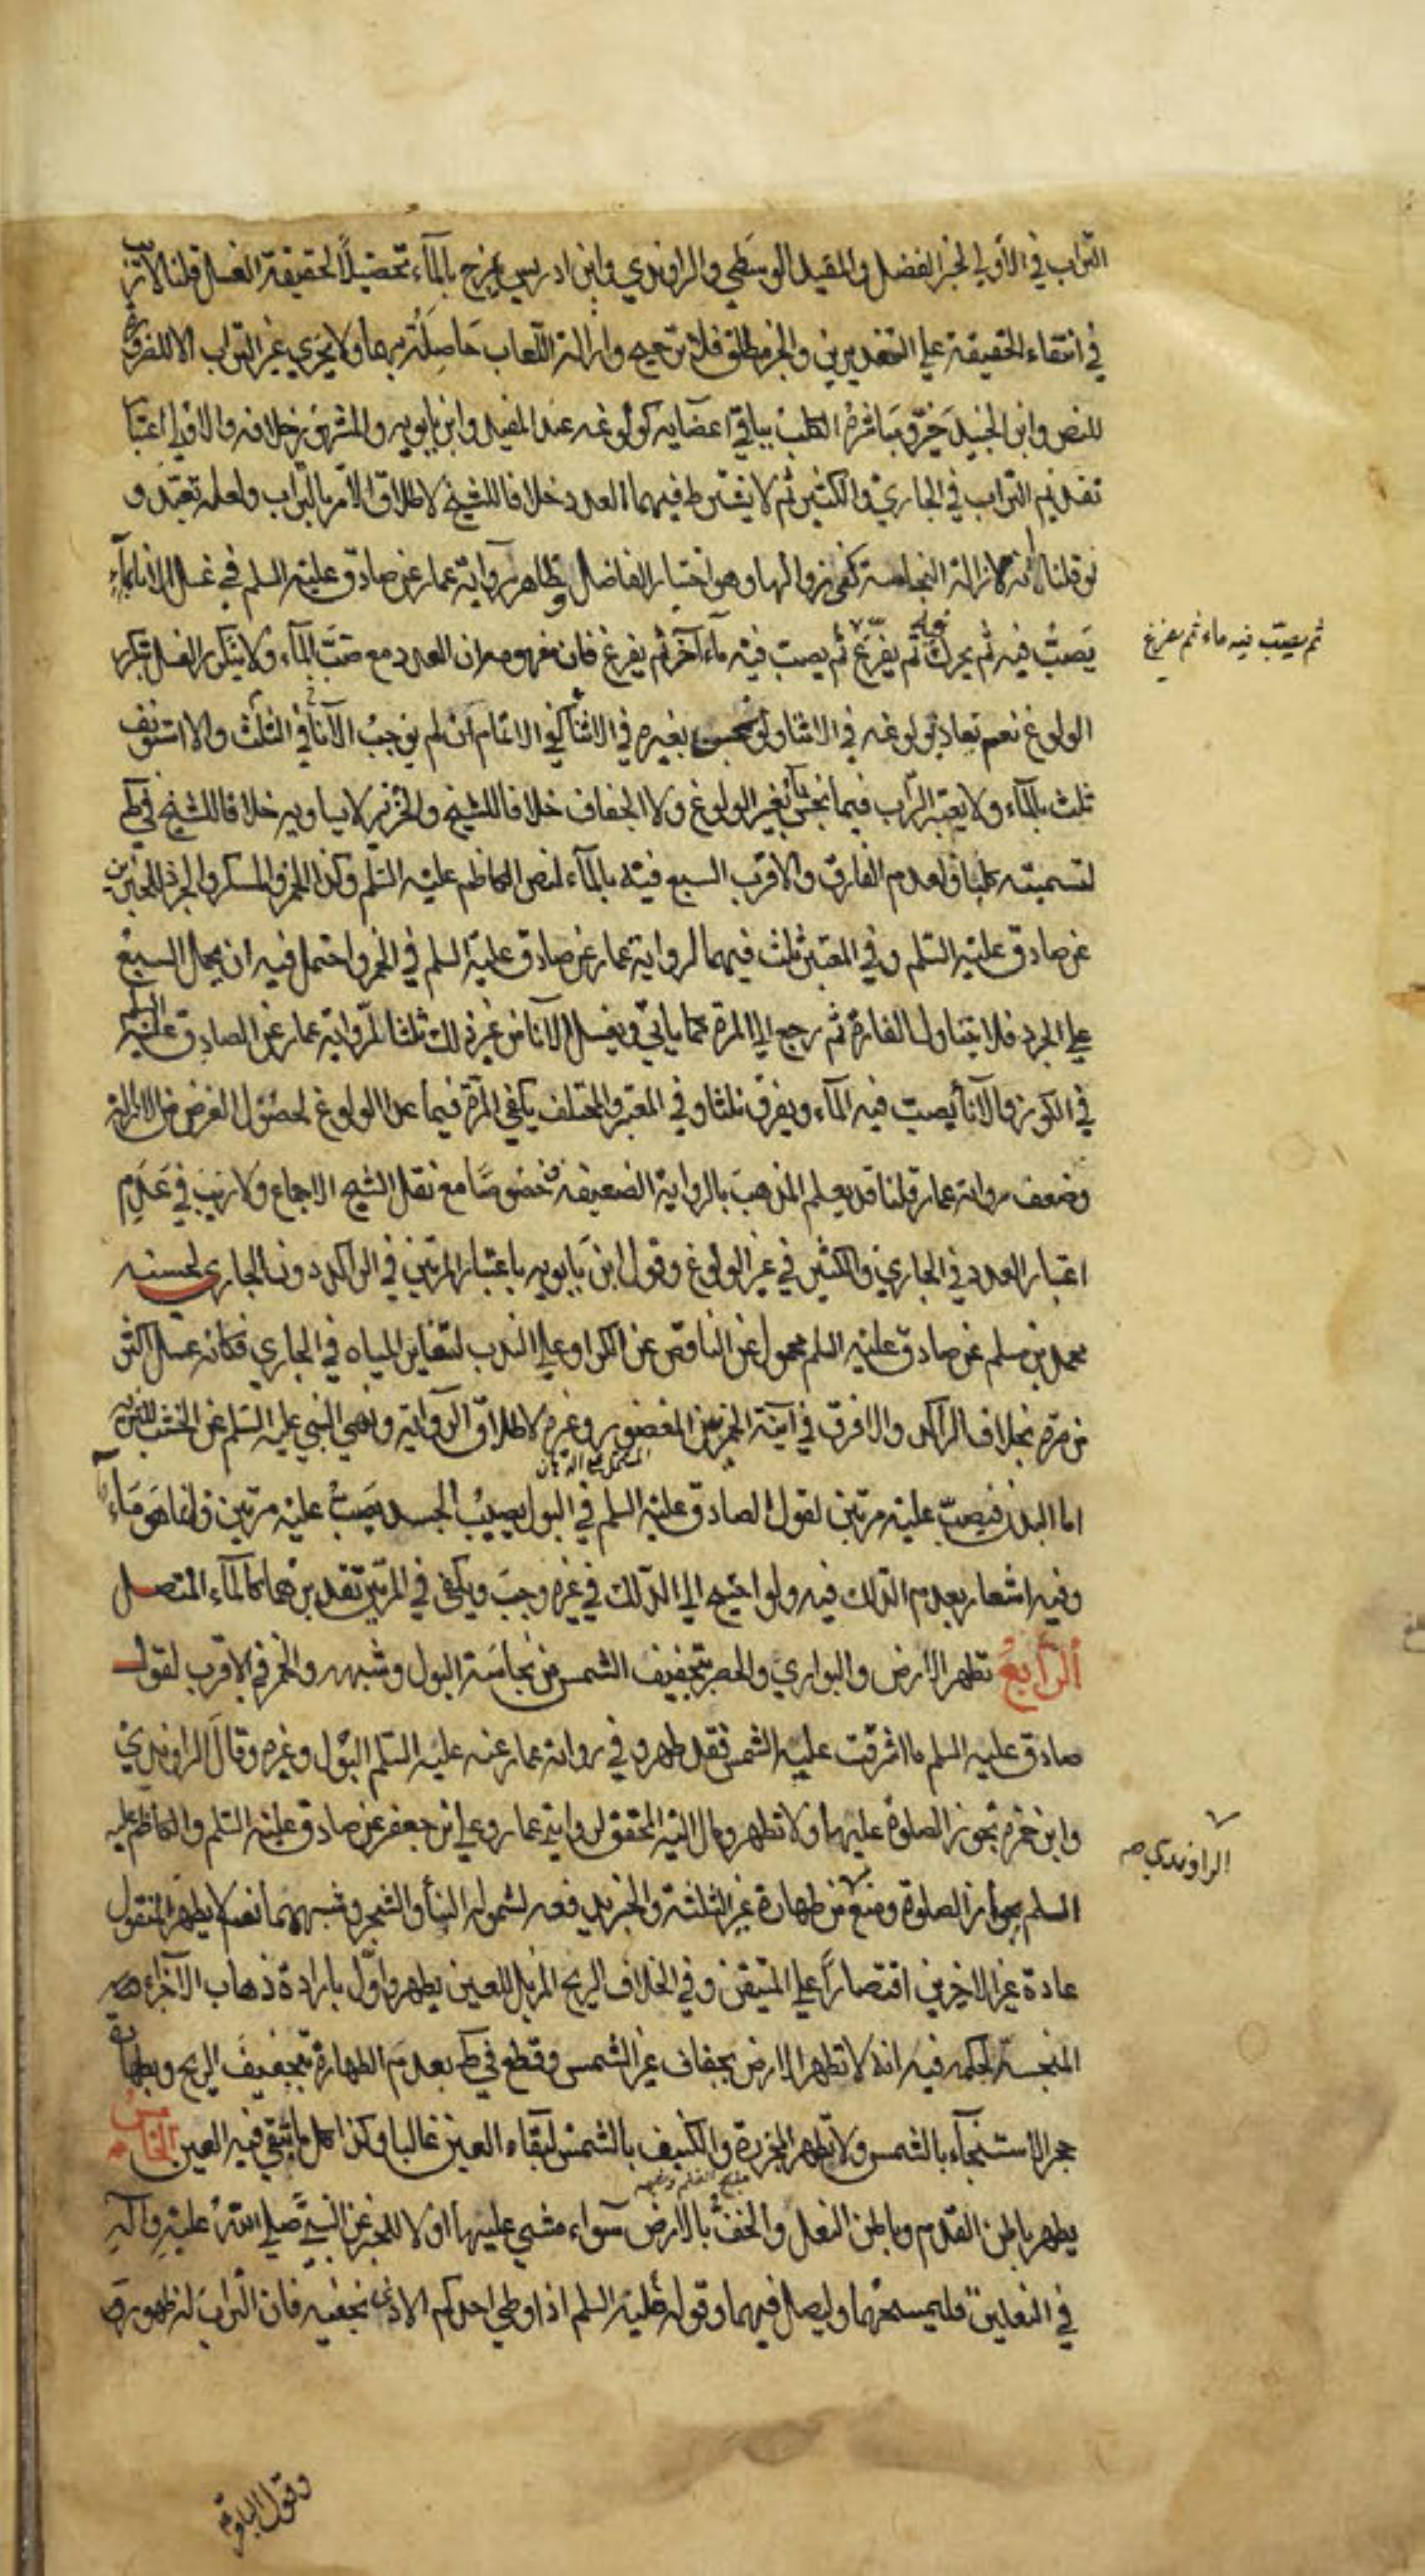 التراب في الأولى لخبر الفضل والمفيد الوسطى والراوندي وابن ادريس يمزج بالمآء تحصيلاً لحقيقة الغسل قلنا لا ترتب
في انتفاء الحقيقة على التقديرين والخبر مطلق فلا ترجيح وازالة اللعاب حاصلة بهما ولا يجزي غير التراب الا للضرورة
للنص وابن الجنيد خير ومباشرة الكلب بباقي اعضايه كولوغه عند المفيد وابن بابويه والمشهور خلافه والاولى اعتبار
تقديم التراب في الجاري والكثير ثم لا يشترط فيهما العدد خلافا للشيخ لاطلاق الامر بالتراب ولعله تعبد و
لو قلنا انه لازالة النجاسة كفى زوالها وهو اختيار الفاضل وظاهر رواية عمار عن صادق عليه السلم في غسل الاناء بالمآء
يصب فيه ثم يحرك ثم يفرغ ثم يصب فيه مآء آخر ثم يفرغ فان مفهومه ان العدد مع صب المآء ولا يتكرر الغسل بتكرر
ثم يصب فيه ماء ثم يفرغ
الولوغ نعم يعاد لو ولغه في الاثنا ولو نجس بغيره في الاثنا كفى الاتمام ان لم يوجب الآنا في الثلث والا استونف
ثلث بالمآء ولا يعتبر التراب فيما نجس بغير الولوغ ولا الجفاف خلافا للشيخ والخنزير لا يساويه خلافا للشيخ في ط
لتسميته كلبا ولعدم الفارق والاقرب السبع فيه بالمآء لنص الكاظم عليه السلم وكذا الخمر والمسكر والجرذ للخبرين
عن صادق عليه السلم وفي المعتبر ثلث فيهما لرواية عمار عن صادق عليه السلم في الخمر واحتمل فيه ان يحال السبع
على الجرذ فلا يتناول الفارة ثم رجع الى المرة كما ياتي ويغسل الآنا من غير ذلك ثلثا لرواية عمار عن الصادق عليه السلم
في الكوز والآنا يصب فيه المآء ويفرق ثلثا وفي المعتبر والمختلف يكفي المرة فيما عدا الولوغ لحصول الغرض من الازالة
وضعف رواية عمار قلنا قد يعلم المذهب بالرواية الضعيفة خصوصًا مع نقل الشيخ الاجماع ولا ريب في عدم
اعتبار العدد في الجاري والكثير في غير الولوغ وقول ابن بابويه باعتبار المرتين في الراكد دون الجاري لحسنه
محمد بن مسلم عن صادق عليه السلم محمول عن الناقص عن الكر او على الندب لتغاير المياه في الجاري فكانه غسل اكثر
من مرة بخلاف الراكد ولا فرق في آنية الخمر بين المغضور وغيره لاطلاق الرواية ونهي النبي عليه السلم عن الخشب للتنزيه
اما البدن فيصب عليه مرتين لقول الصادق عليه السلم في البول يصيب الجسد يصب عليه مرتين فانما هو مآء
وفيه اشعار بعدم الدلك فيه ولو احتيج الى الدلك في غيره وجب ويكفي في المرتين تقديرهما كالمآء المتصل
الرابع تطهر الارض والبواري والحصر بتجفيف الشمس من نجاسة البول وشبهه والخمر في الاقرب لقول
صادق عليه السلم ما اشرقت عليه الشمس فقد طهر وفي رواية عمار عنه عليه السلم البول وغيره وقال الراوندي
وابن حمزة تجوز الصلوة عليها ولا تطهر ومال اليه المحقق لرواية عمار وعلى بن جعفر عن صادق عليه السلم والكاظم عليه
السلم بجواز الصلوة ومنع من طهارة غير الثلثة والخبر يدفعه لشموله البنآ والشجر وشبههما نعم لا يطهر المنقول
الراوندي
عادة غير الاخرين اقتصارًا على المتيقن وفي الخلاف الريح المزيل للعين يطهر واول بارادة ذهاب الاجزاء
المنجسة لحكمه فيه انه لا تطهر الارض بجفاف غير الشمس وقطع في ط بعدم الطهارة بتجفيف الريح وبطهارة
حجر الاستنجآء بالشمس ولا تطهر المجزرة والكنيف بالشمس لبقاء العين غالبا وكذا كل ما تبقى فيه العين الخامس
يطهر باطن القدم وباطن النعل والخف بالارض سوآء مشى عليها او لا للخبر عن النبي صلى الله عليه وآله
في النعلين فليمسحهما وليصل فيهما وقوله عليه السلم اذا وطي احدكم الاذى بخفيه فان التراب له طهور
وقول الباقر